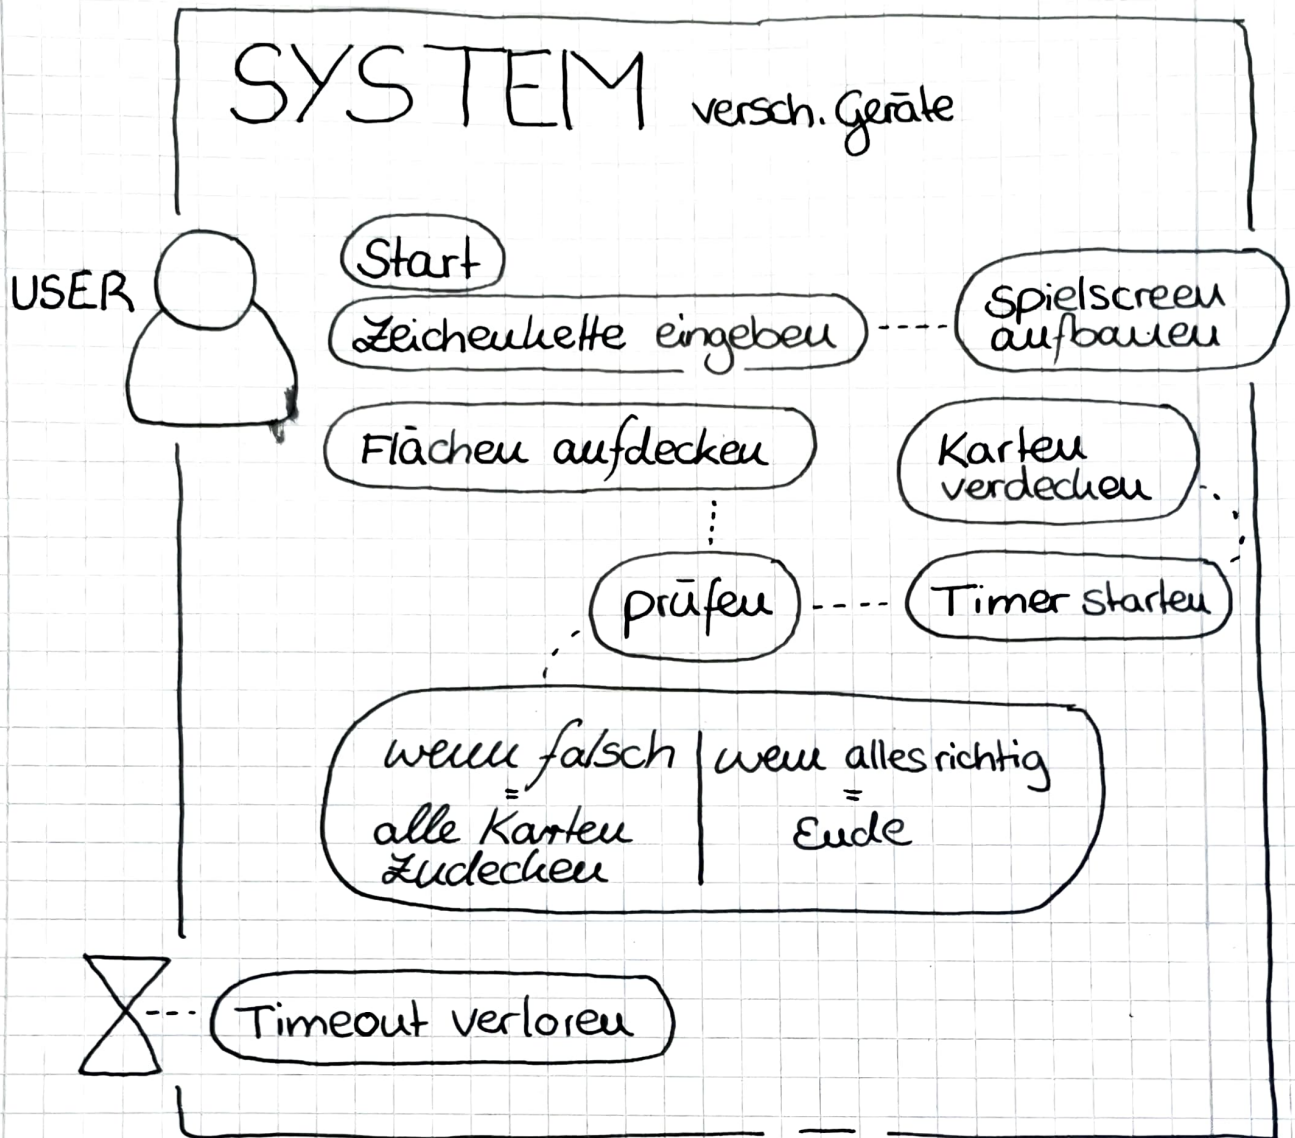 SYSTEM versch. Geräte
USER
Start
Zeichenkette eingeben
Spielscreen
aufbauen
Flächen aufdecken
Karten
verdecken
prüfen
Timer starten
wenn falsch
=
alle Karten
zudecken
wenn alles richtig
=
Ende
Timeout verloren